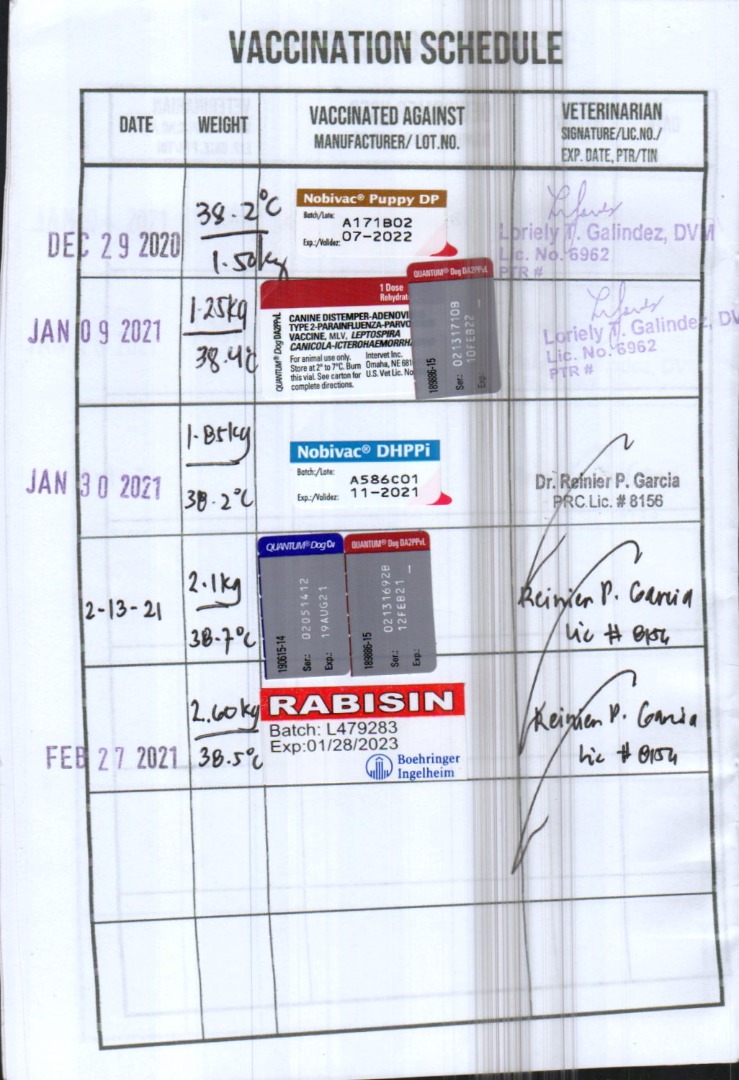 VACCINATION SCHEDULE
DATE
WEIGHT
VACCINATED AGAINST
MANUFACTURER/ LOT.NO.
VETERINARIAN
SIGNATURE/LIC.NO./
EXP. DATE, PTR/TIN
DEC 29 2020
38.2°C
1.50kg
Nobivac® Puppy DP
Batch/Lote:
A171B02
Exp.:/Validez:
07-2022
Loriely T. Galindez, DVM
Lic. No. 6962
PTR #
JAN 09 2021
1.25kg
38.4°C
QUANTUM® Dog DA2PPvL
1 Dose
CANINE DISTEMPER-ADENOVI
TYPE 2-PARAINFLUENZA-PARVO
VACCINE, MLV, LEPTOSPIRA
CANICOLA-ICTEROHAEMORRH
For animal use only.
Store at 2° to 7°C. Burn
this vial. See carton for
complete directions.
Intervet Inc.
Omaha, NE 681
U.S. Vet Lic. No
QUANTUM® Dog DA2PPvL
189886-15
Ser.: 02131710B
Exp.: 10FEB22
Loriely T. Galindez, DV
Lic. No. 6962
PTR #
JAN 30 2021
1.85kg
38.2°C
Nobivac® DHPPi
Batch:/Lote:
A586C01
Exp.:/Validez:
11-2021
Dr. Reinier P. Garcia
PRC Lic. # 8156
2-13-21
2.1kg
38.7°C
QUANTUM® Dog Cv
190615-14
Ser.: 02051412
Exp.: 19AUG21
QUANTUM® Dog DA2PPvL
189886-15
Ser.: 02131692B
Exp.: 12FEB21
Reinier P. Garcia
Lic #
FEB 27 2021
2.60kg
38.5°C
RABISIN
Batch: L479283
Exp:01/28/2023
Boehringer
Ingelheim
Reinier P. Garcia
Lic #